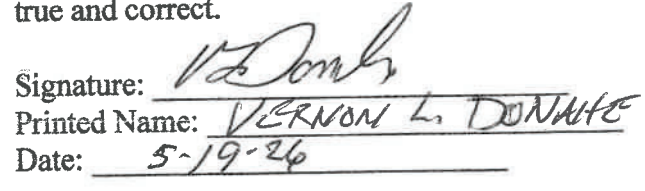 true and correct.
Signature:
Printed Name: VERNON L. DONAHE
Date: 5-19-26